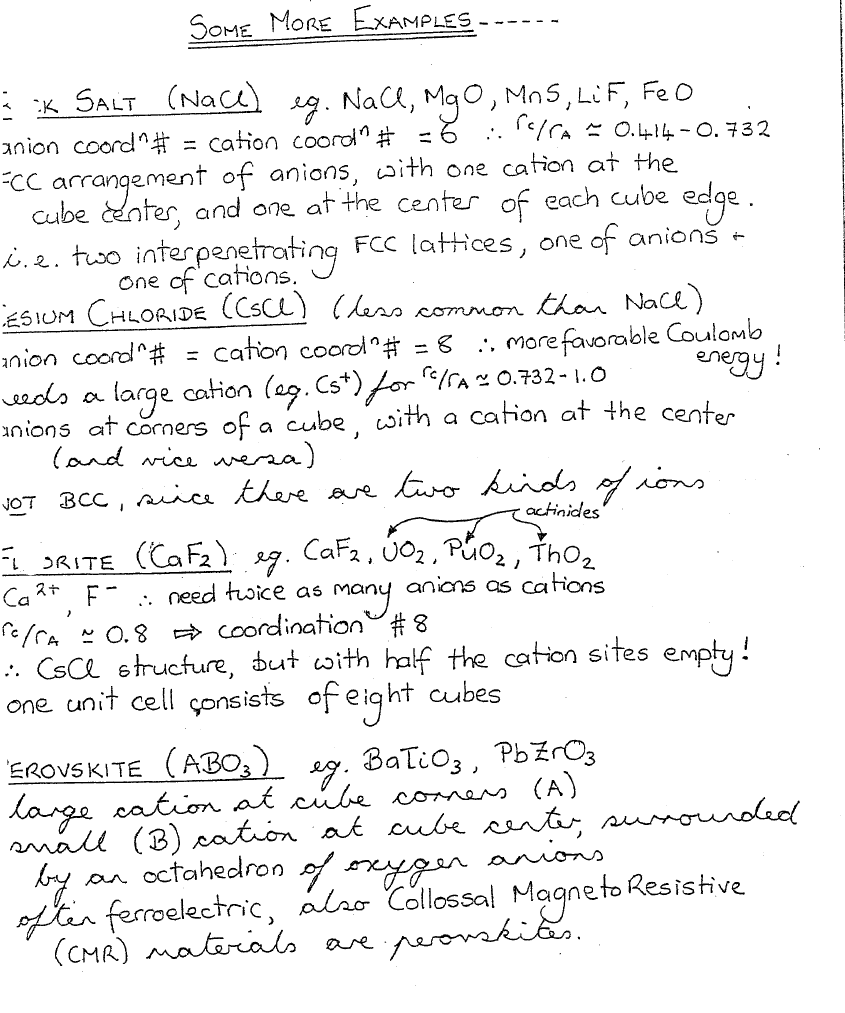 SOME MORE EXAMPLES ------
CK SALT (NaCl) eg. NaCl, MgO, MnS, LiF, FeO
anion coordⁿ# = cation coordⁿ# = 6 ∴ rc/rA ≃ 0.414-0.732
FCC arrangement of anions, with one cation at the
cube center, and one at the center of each cube edge.
i.e. two interpenetrating FCC lattices, one of anions +
one of cations.
ESIUM CHLORIDE (CsCl) (less common than NaCl)
anion coordⁿ# = cation coordⁿ# = 8 ∴ more favorable Coulomb
energy!
needs a large cation (eg. Cs⁺) for rc/rA ≃ 0.732-1.0
anions at corners of a cube, with a cation at the center
(and vice versa)
NOT BCC, since there are two kinds of ions
actinides
FL ORITE (CaF₂) eg. CaF₂, UO₂, PuO₂, ThO₂
Ca²⁺, F⁻ ∴ need twice as many anions as cations
rc/rA ≃ 0.8 ⇒ coordination #8
∴ CsCl structure, but with half the cation sites empty!
one unit cell consists of eight cubes
EROVSKITE (ABO₃) eg. BaTiO₃, PbZrO₃
large cation at cube corners (A)
small (B) cation at cube center, surrounded
by an octahedron of oxygen anions
often ferroelectric, also Collossal MagnetoResistive
(CMR) materials are perovskites.